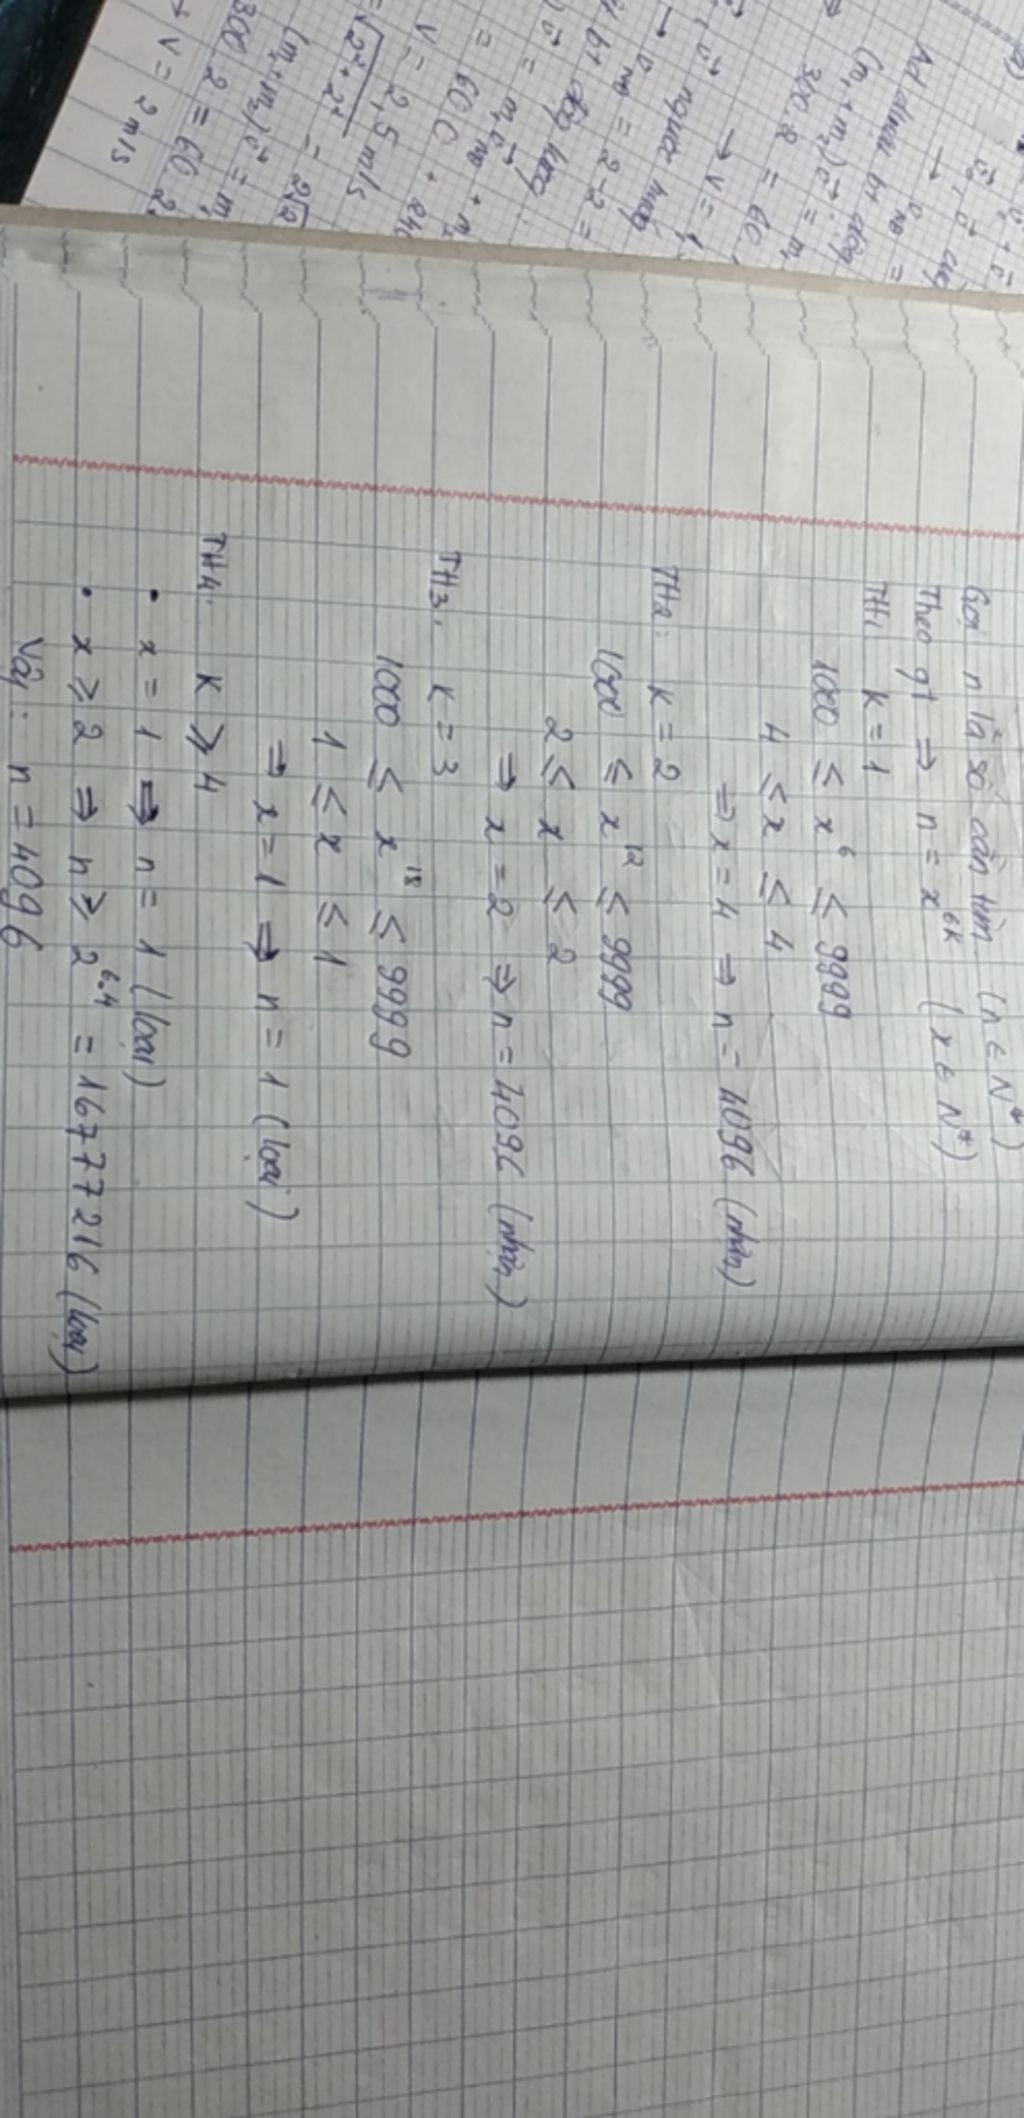 Gọi n là số cần tìm (n ∈ N*)
Theo gt ⇒ n = x^6k (x ∈ N*)
TH1 k = 1
1000 ≤ x^6 ≤ 9999
4 ≤ x ≤ 4
⇒ x = 4 ⇒ n = 4096 (nhận)
TH2: k = 2
1000 ≤ x^12 ≤ 9999
2 ≤ x ≤ 2
⇒ x = 2 ⇒ n = 4096 (nhận)
TH3: k = 3
1000 ≤ x^18 ≤ 9999
1 ≤ x ≤ 1
⇒ x = 1 ⇒ n = 1 (loại)
TH4: k ≥ 4
• x = 1 ⇒ n = 1 (loại)
• x ≥ 2 ⇒ n ≥ 2^6.4 = 16777216 (loại)
Vậy: n = 4096
(m1 + m2) v = m1
300.2 = 60
→ v =
ngược hướng
→ vnB = 2-2 =
v = 2,5 m/s
= √2²+2² = 2√2
(m1 + m2) v = m1
300 2 = 60.2
→ v = 2 m/s